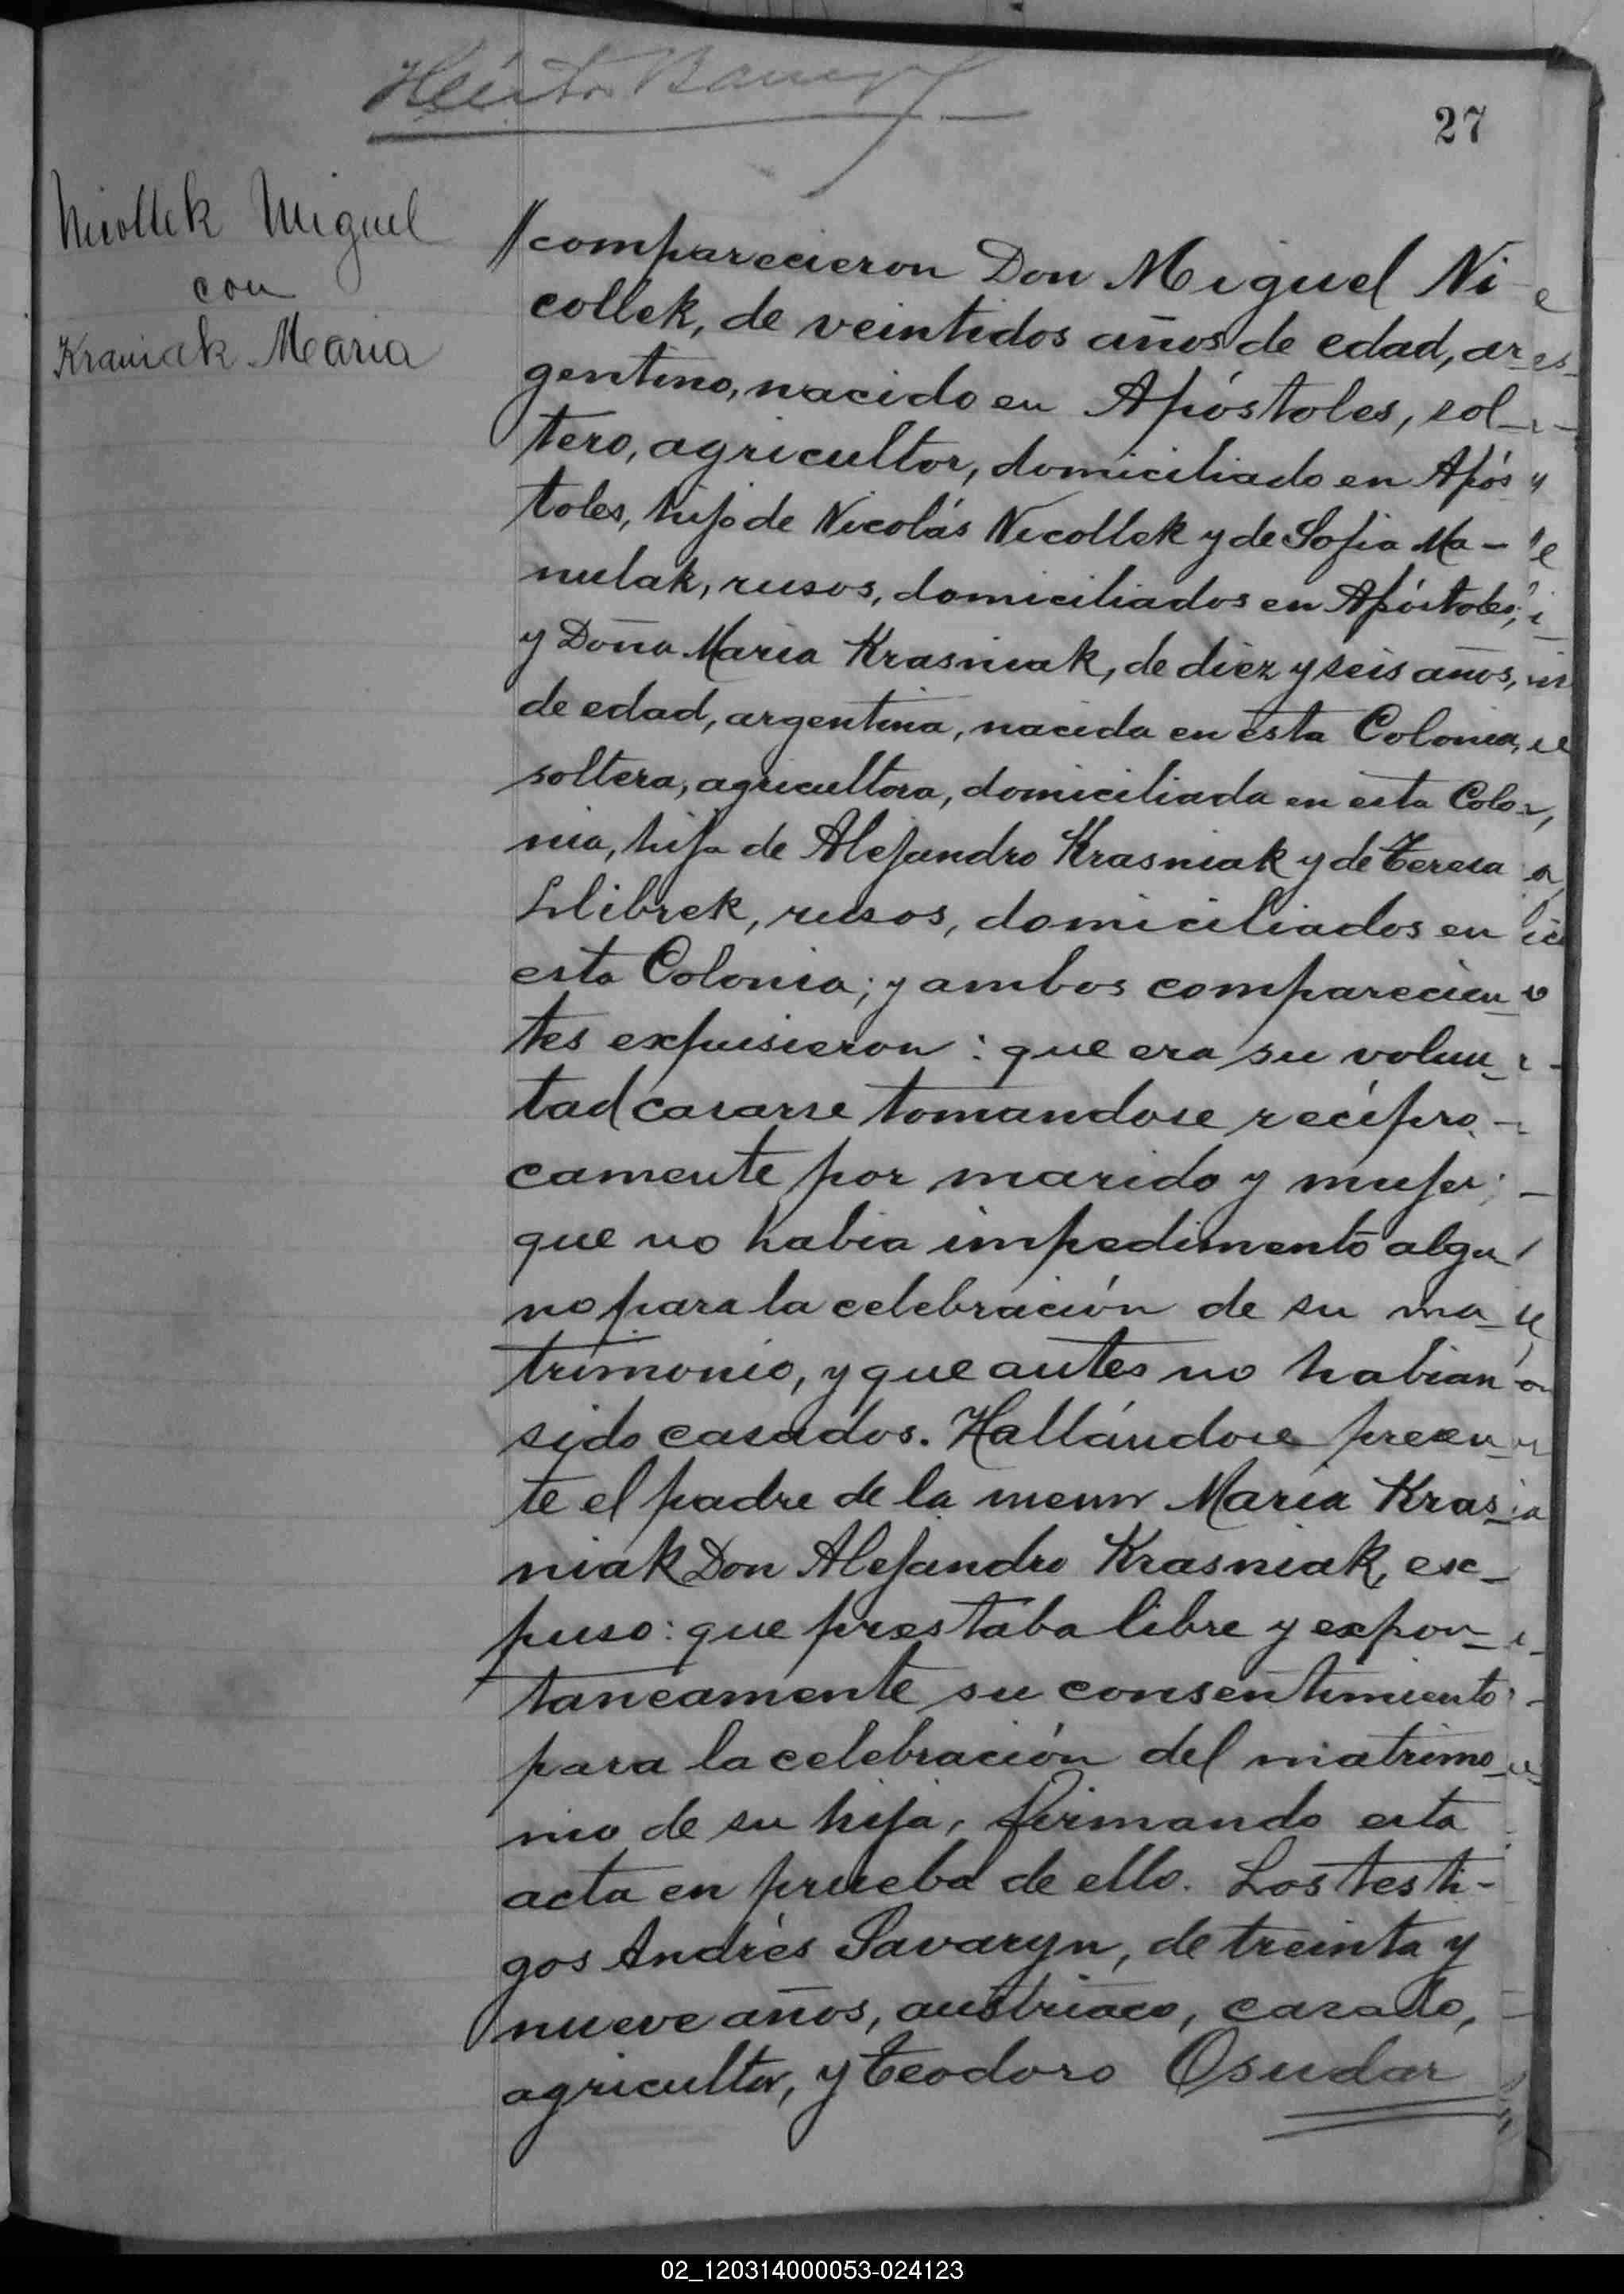 27
Nicollek Miguel
con
Krasniak Maria
//comparecieron Don Miguel Ni
collek, de veintidos años de edad, ar
gentino, nacido en Apóstoles, sol-
tero, agricultor, domiciliado en Após
toles, hijo de Nicolás Nicollek y de Sofia Ma-
nulak, rusos, domiciliados en Apóstoles;
y Doña Maria Krasniak, de diez y seis años,
de edad, argentina, nacida en esta Colonia,
soltera, agricultora, domiciliada en esta Colo-
nia, hija de Alejandro Krasniak y de Teresa
Llibrek, rusos, domiciliados en
esta Colonia; y ambos comparecien
tes expusieron: que era su volun-
tad casarse tomandose recípro-
camente por marido y mujer;
que no habia impedimento algu
no para la celebración de su ma-
trimonio, y que antes no habian
sido casados. Hallándose presen-
te el padre de la menor Maria Kras-
niak Don Alejandro Krasniak, ex-
puso: que prestaba libre y expon-
taneamente su consentimiento
para la celebración del matrimo-
nio de su hija, firmando esta
acta en prueba de ello. Los testi-
gos Andrés Savaryn, de treinta y
nueve años, austriaco, casado,
agricultor, y Teodoro Osudar
02_120314000053-024123